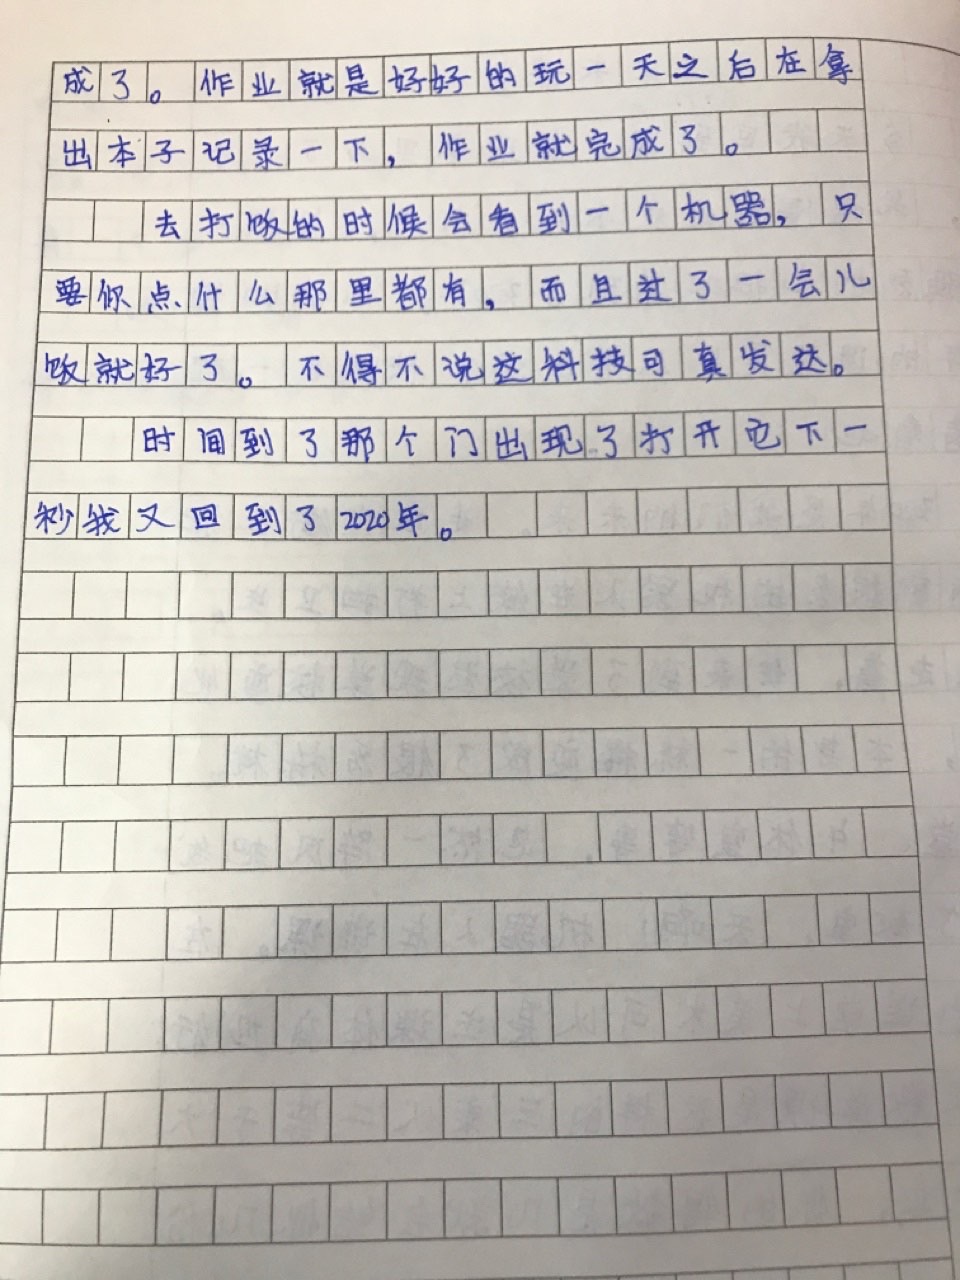 成了。作业就是好好的玩一天之后在拿
出本子记录一下，作业就完成了。
去打饭的时候会看到一个机器，只
要你点什么那里都有，而且过了一会儿
饭就好了。不得不说这科技可真发达。
时间到了那个门出现了打开它下一
秒我又回到了2020年。